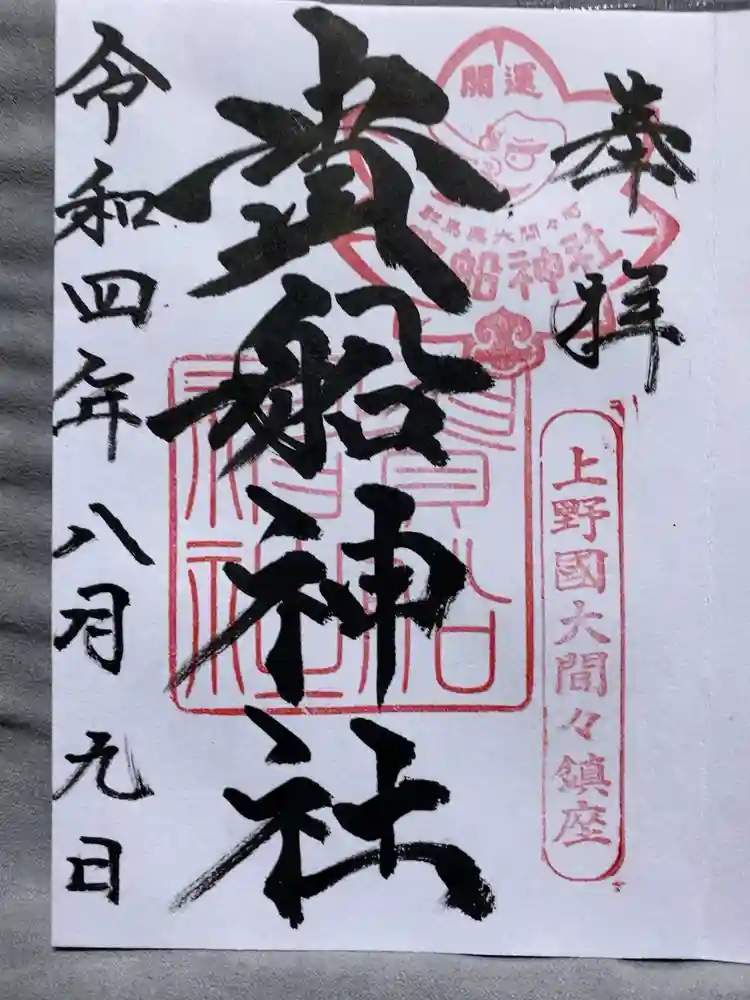 奉拝
開運
群馬県大間々町
貴船神社
上野國大間々鎮座
貴船神社
貴船
神社
令和四年八月九日